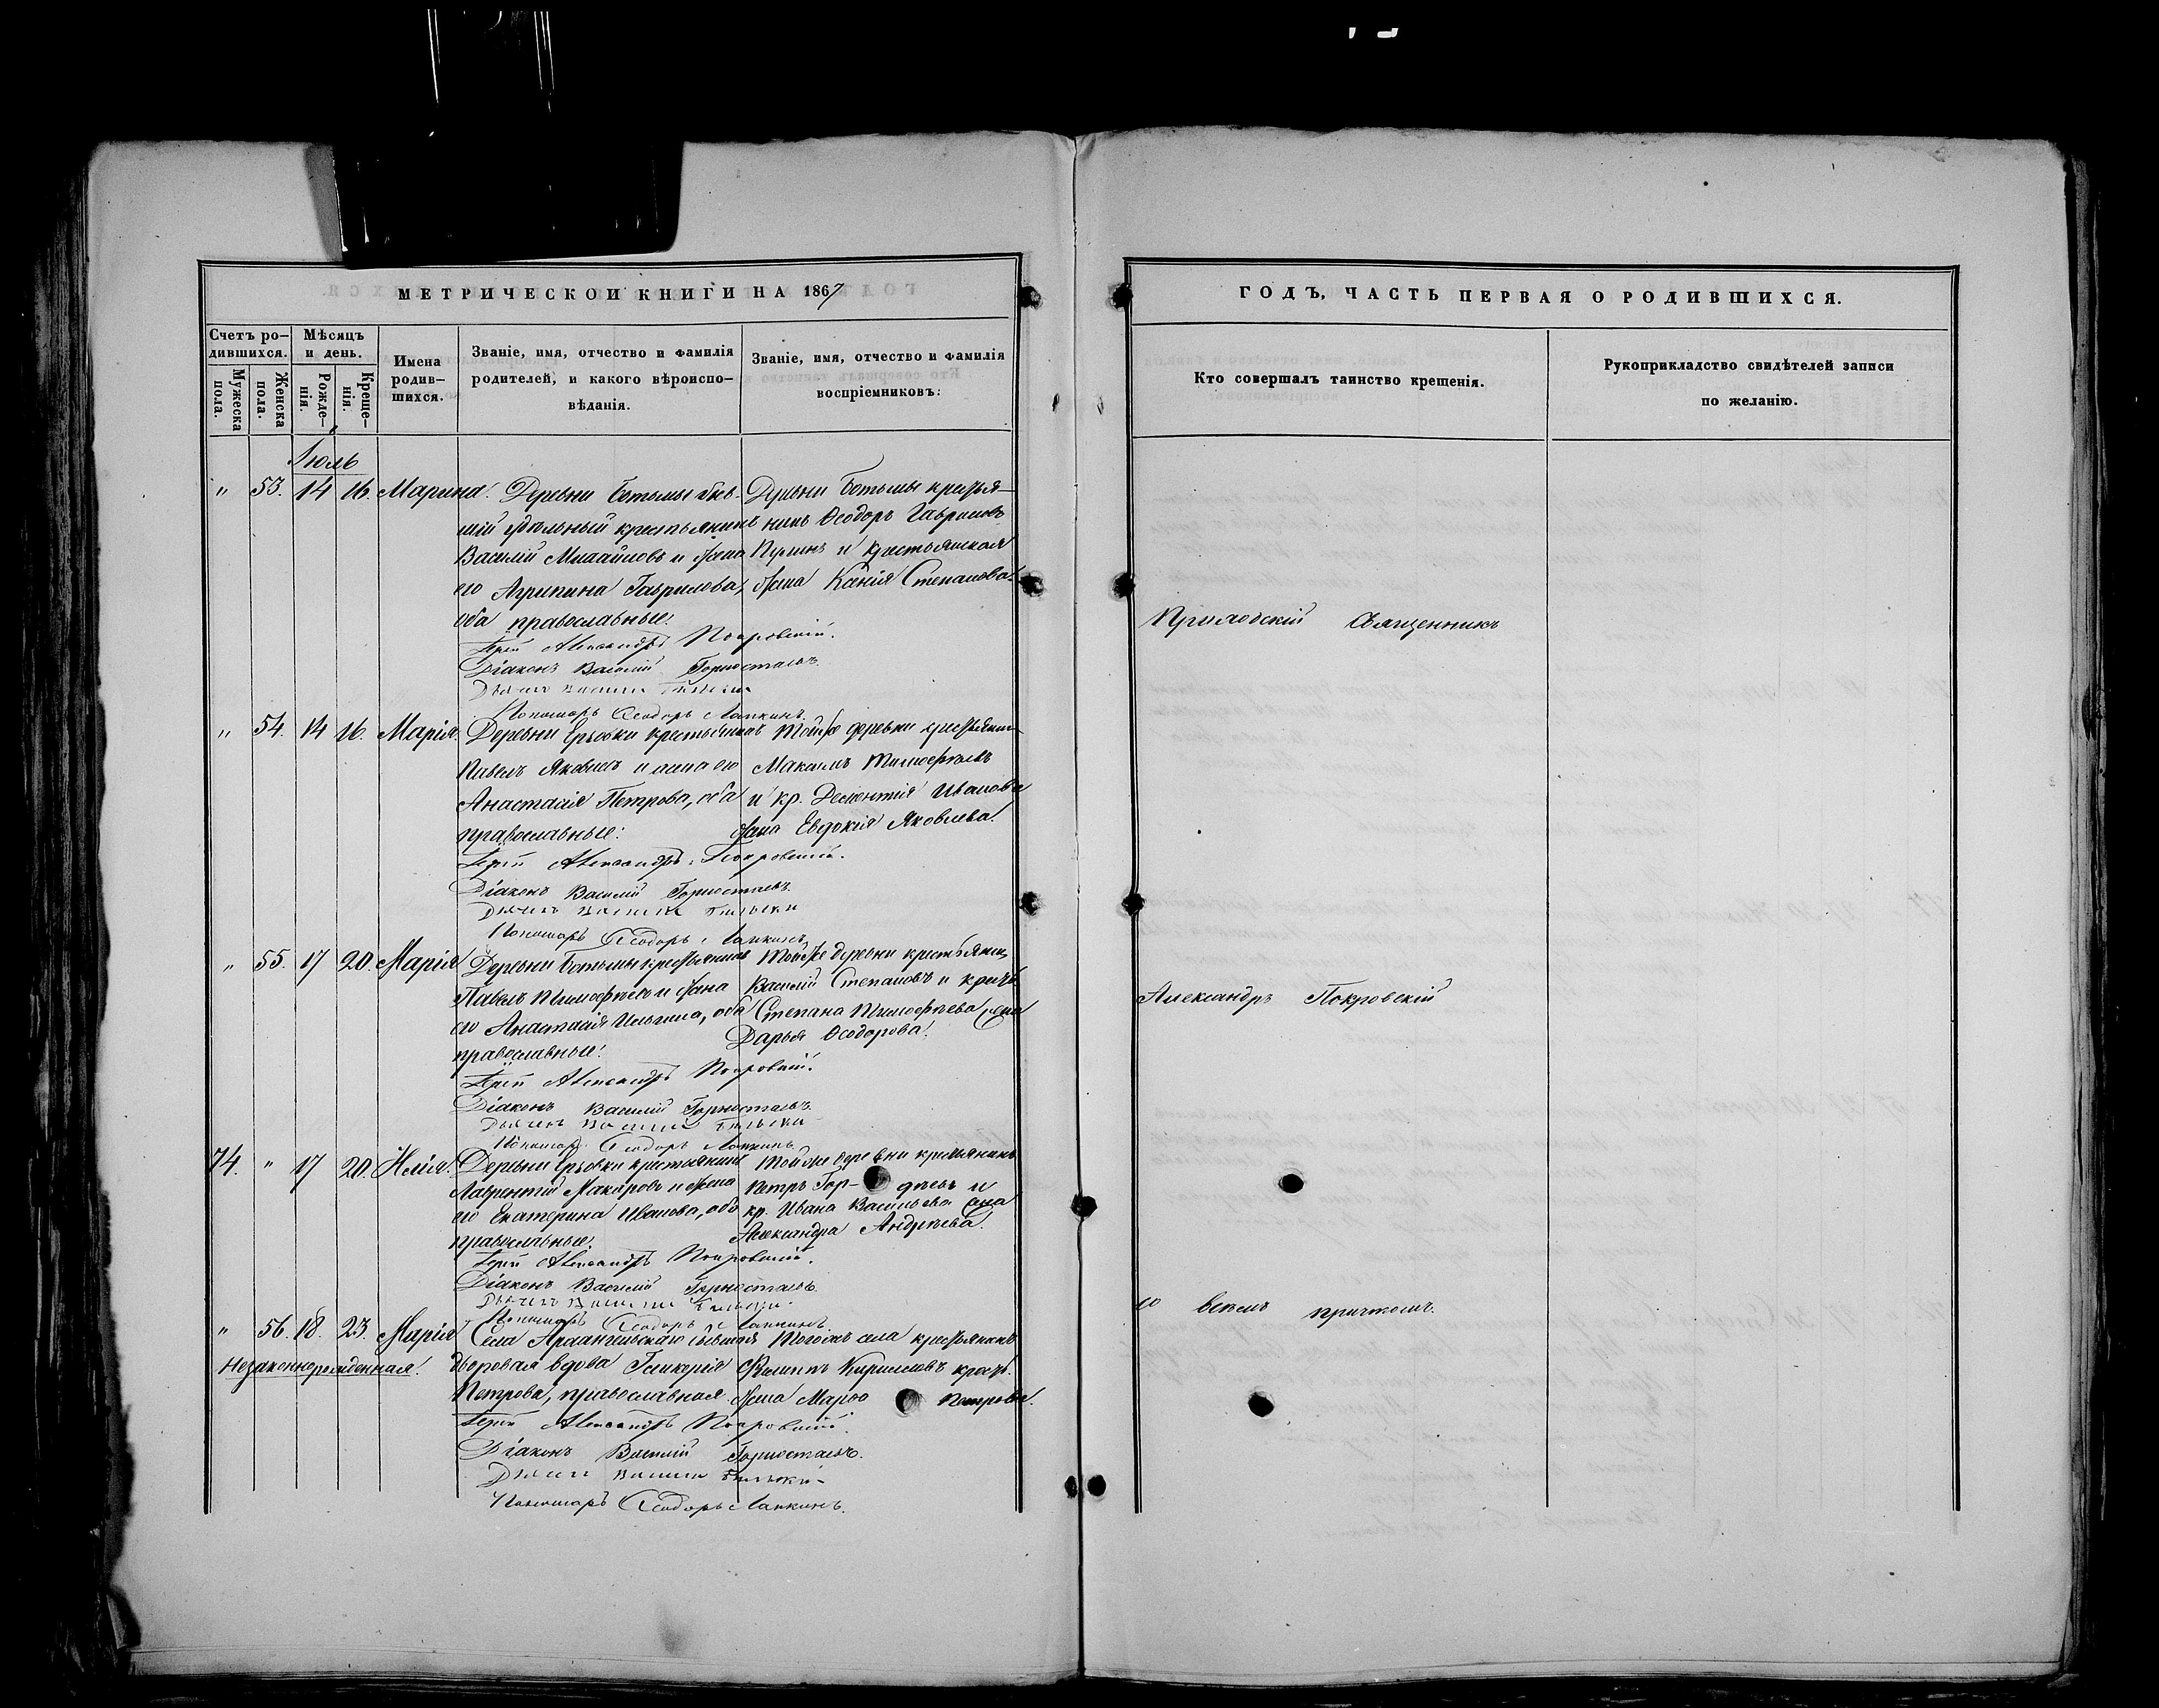 МЕТРИЧЕСКОЙ КНИГИ НА 1867
ГОДЪ, ЧАСТЬ ПЕРВАЯ О РОДИВШИХСЯ.
Счетъ ро-
дившихся.
Мѣсяцъ
и день.
Мужеска
пола.
Женска
пола.
Рожде-
нія.
Креще-
нія.
Имена
родив-
шихся.
Званіе, имя, отчество и фамилія
родителей, и какого вѣроиспо-
вѣданія.
Званіе, имя, отчество и фамилія
воспріемниковъ:
Кто совершалъ таинство крещенія.
Рукоприкладство свидѣтелей записи
по желанію.
Іюль
" 53. 14 16. Марина. Деревни Ботьмы быв- Деревни Ботьмы крестья-
шій удѣльный крестьянинъ нинъ Ѳеодоръ Гавриловъ
Василій Михайловъ и жена и крестьянская
его Агрипина Гаврилова, жена Ксенія Степанова.
оба православные.
Іерей Александръ Покровскій.
Діаконъ Василій Горностаевъ.
Дьячекъ Василій
Пономарь Ѳеодоръ Лапкинъ.
" 54. 14 16. Марія. Деревни Ерьовки крестьянинъ Той же деревни крестьянинъ
Павелъ Яковлевъ и жена его Максимъ Тимоѳеевъ
Анастасія Петрова, оба и кр. Дементія Иванова
православные: жена Евдокія Яковлева.
Іерей Александръ Покровскій.
Діаконъ Василій Горностаевъ.
Дьячекъ Василій
Пономарь Ѳеодоръ Лапкинъ.
" 55. 17 20. Марія Деревни Ботьмы крестьянинъ Той же деревни крестьянинъ
Павелъ Тимоѳеевъ и жена Василій Степановъ и крест.
его Анастасія Ильина, оба Степана Тимоѳеева жена
православные. Дарья Ѳеодорова.
Іерей Александръ Покровскій.
Діаконъ Василій Горностаевъ.
Дьячекъ Василій
Пономарь Ѳеодоръ Лапкинъ
74. " 17 20. Илія. Деревни Ерьовки крестьянинъ Той же деревни крестьянинъ
Лаврентій Макаровъ и жена Петръ Гор- дѣевъ и
его Екатерина Иванова, оба кр. Ивана Васильева жена
православные. Александра Андреева.
Іерей Александръ Покровскій.
Діаконъ Василій Горностаевъ.
Дьячекъ Василій
Пономарь Ѳеодоръ Лапкинъ
" 56. 18. 23. Марія Села Архангельскаго бывшая Тогоже села крестьянинъ
Незаконнорожденная. дворовая вдова Гликерія Филиппъ Кирилловъ крест.
Петрова, православная жена Марѳа Петрова.
Іерей Александръ Покровскій.
Діаконъ Василій Горностаевъ.
Дьячекъ Василій
Пономарь Ѳеодоръ Лапкинъ.
Приходскій Священникъ
Александръ Покровскій
со всѣмъ причтомъ.